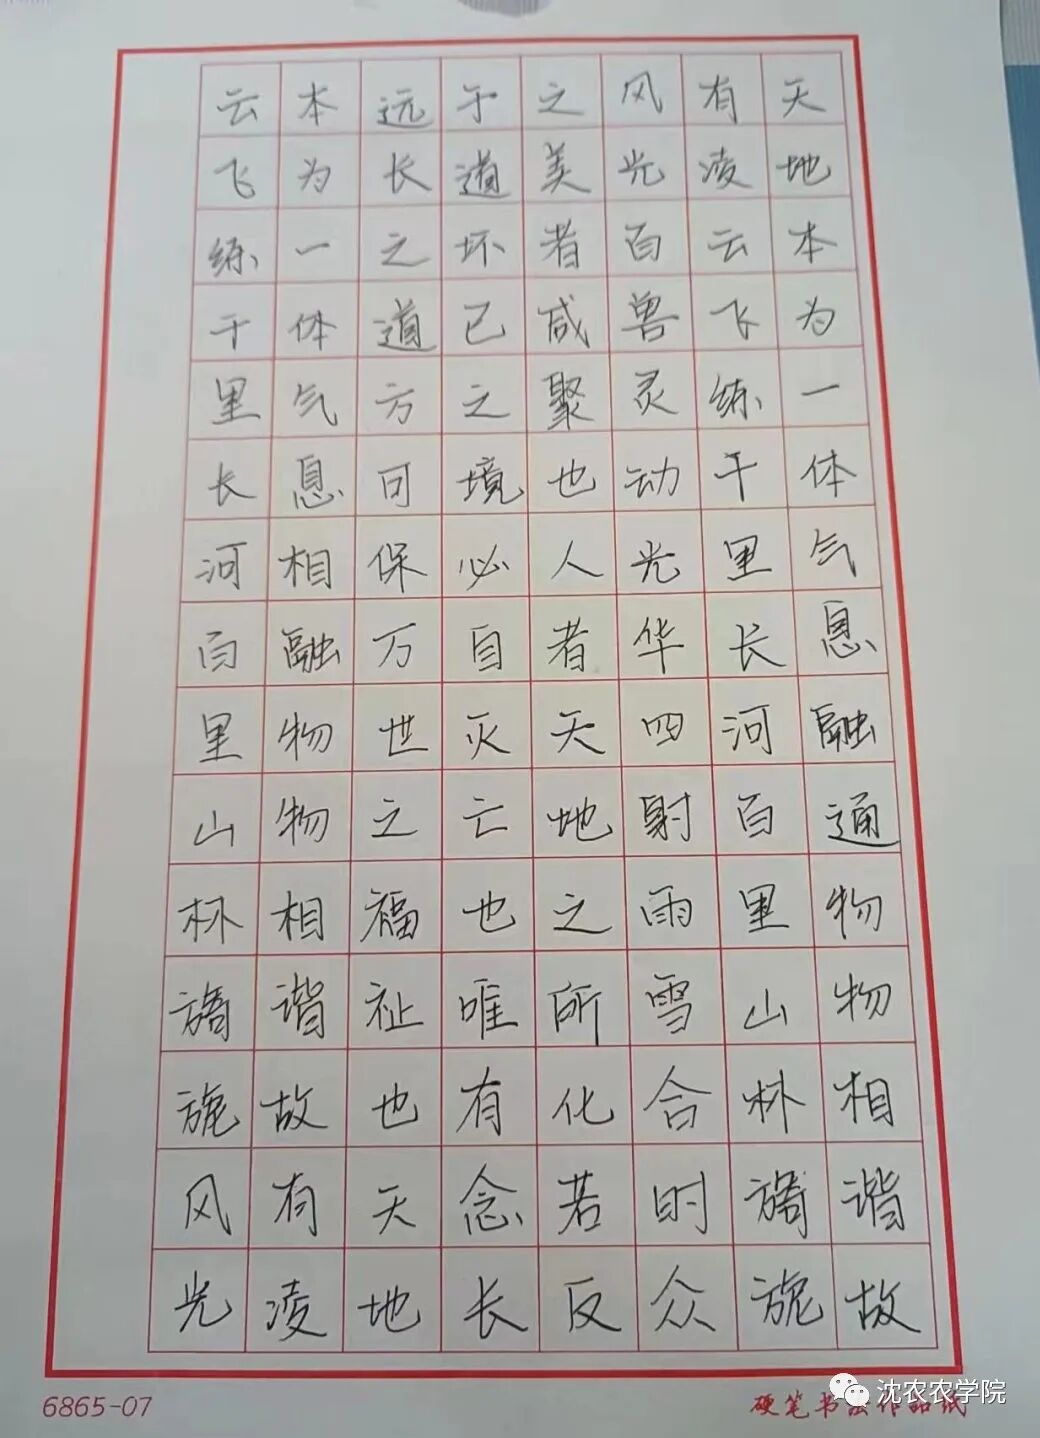 天地本为一体气息融通物物相谐故
有凌云飞练千里长河百里山林旖旎
风光百兽灵动光华四射雨雪合时众
之美者咸聚也人者天地之所化若反
于道坏己之境必自灭亡也唯有念长
远长之道方可保万世之福祉也天地
本为一体气息相融物物相谐故有凌
云飞练千里长河百里山林旖旎风光
6865-07
硬笔书法作品纸
沈农农学院